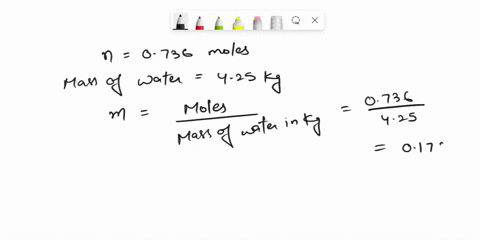 n = 0.736 moles
Mass of water = 4.25 Kg
m = Moles / Mass of water in Kg = 0.736 / 4.25
= 0.17